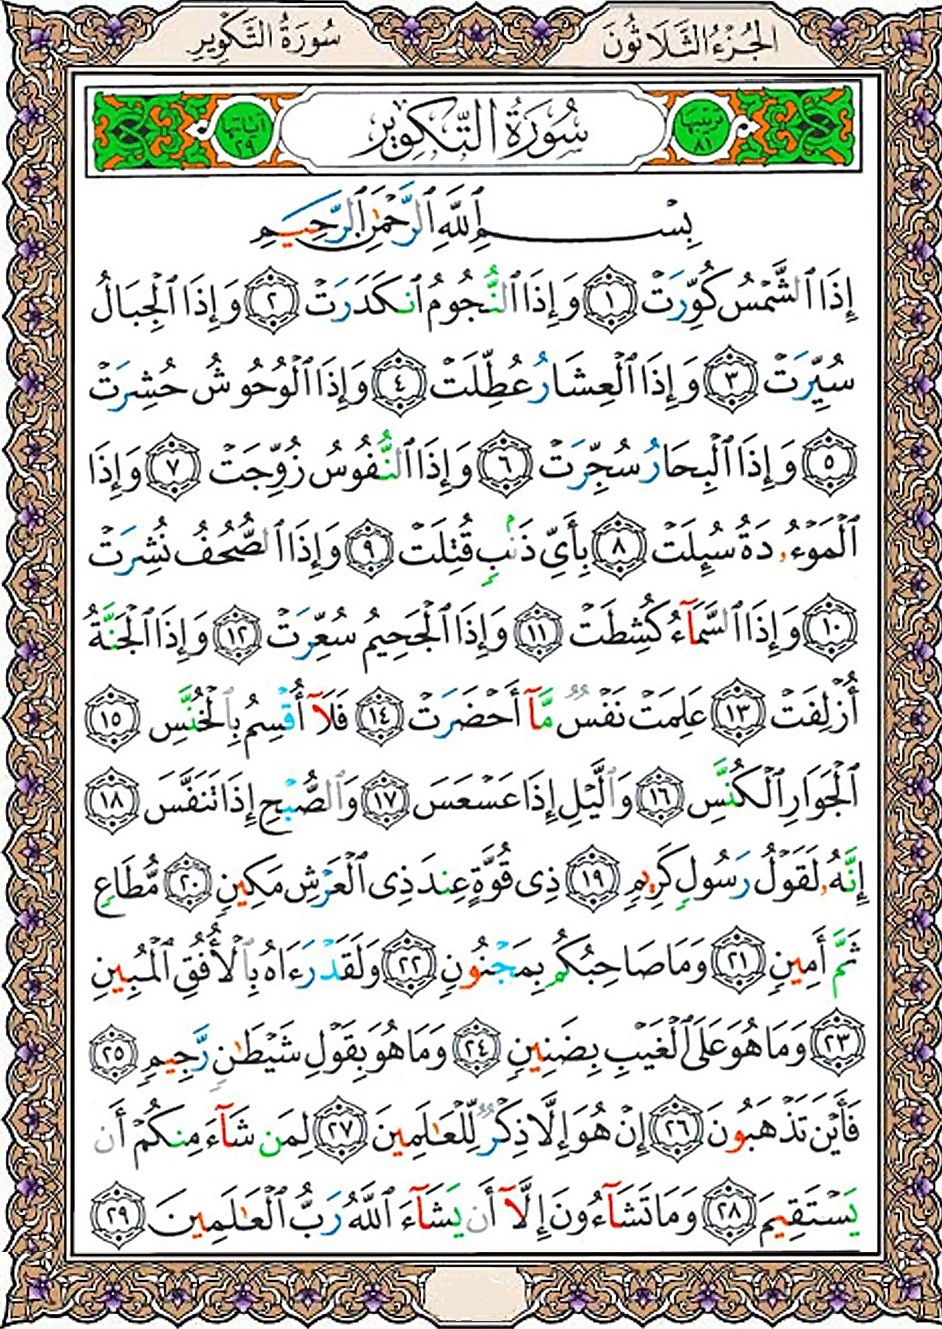 الجُزْءُ الثَّلَاثُونَ
سُورَةُ التَّكْوِيرِ
ترتيبها ٨١
سُورَةُ التَّكْوِيرِ
آياتها ٢٩
بِسْمِ ٱللَّهِ ٱلرَّحْمَٰنِ ٱلرَّحِيمِ
إِذَا ٱلشَّمْسُ كُوِّرَتْ ١ وَإِذَا ٱلنُّجُومُ ٱنكَدَرَتْ ٢ وَإِذَا ٱلْجِبَالُ
سُيِّرَتْ ٣ وَإِذَا ٱلْعِشَارُ عُطِّلَتْ ٤ وَإِذَا ٱلْوُحُوشُ حُشِرَتْ
٥ وَإِذَا ٱلْبِحَارُ سُجِّرَتْ ٦ وَإِذَا ٱلنُّفُوسُ زُوِّجَتْ ٧ وَإِذَا
ٱلْمَوْءُۥدَةُ سُئِلَتْ ٨ بِأَىِّ ذَنۢبٍ قُتِلَتْ ٩ وَإِذَا ٱلصُّحُفُ نُشِرَتْ
١٠ وَإِذَا ٱلسَّمَآءُ كُشِطَتْ ١١ وَإِذَا ٱلْجَحِيمُ سُعِّرَتْ ١٢ وَإِذَا ٱلْجَنَّةُ
أُزْلِفَتْ ١٣ عَلِمَتْ نَفْسٌ مَّآ أَحْضَرَتْ ١٤ فَلَآ أُقْسِمُ بِٱلْخُنَّسِ ١٥
ٱلْجَوَارِ ٱلْكُنَّسِ ١٦ وَٱلَّيْلِ إِذَا عَسْعَسَ ١٧ وَٱلصُّبْحِ إِذَا تَنَفَّسَ ١٨
إِنَّهُۥ لَقَوْلُ رَسُولٍ كَرِيمٍ ١٩ ذِى قُوَّةٍ عِندَ ذِى ٱلْعَرْشِ مَكِينٍ ٢٠ مُّطَاعٍ
ثَمَّ أَمِينٍ ٢١ وَمَا صَاحِبُكُم بِمَجْنُونٍ ٢٢ وَلَقَدْ رَءَاهُ بِٱلْأُفُقِ ٱلْمُبِينِ
٢٣ وَمَا هُوَ عَلَى ٱلْغَيْبِ بِضَنِينٍ ٢٤ وَمَا هُوَ بِقَوْلِ شَيْطَٰنٍ رَّجِيمٍ ٢٥
فَأَيْنَ تَذْهَبُونَ ٢٦ إِنْ هُوَ إِلَّا ذِكْرٌ لِّلْعَٰلَمِينَ ٢٧ لِمَن شَآءَ مِنكُمْ أَن
يَسْتَقِيمَ ٢٨ وَمَا تَشَآءُونَ إِلَّآ أَن يَشَآءَ ٱللَّهُ رَبُّ ٱلْعَٰلَمِينَ ٢٩